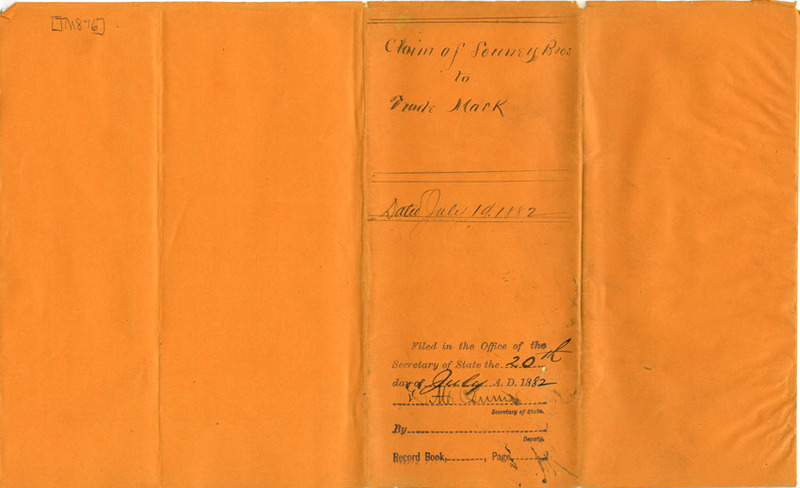 [TM876]
Claim of Souney Bros
to
Trade Mark
Dated July 19, 1882
Filed in the Office of the
Secretary of State the 20th
day of July A. D. 1882
Secretary of State.
By
Deputy.
Record Book, , Page